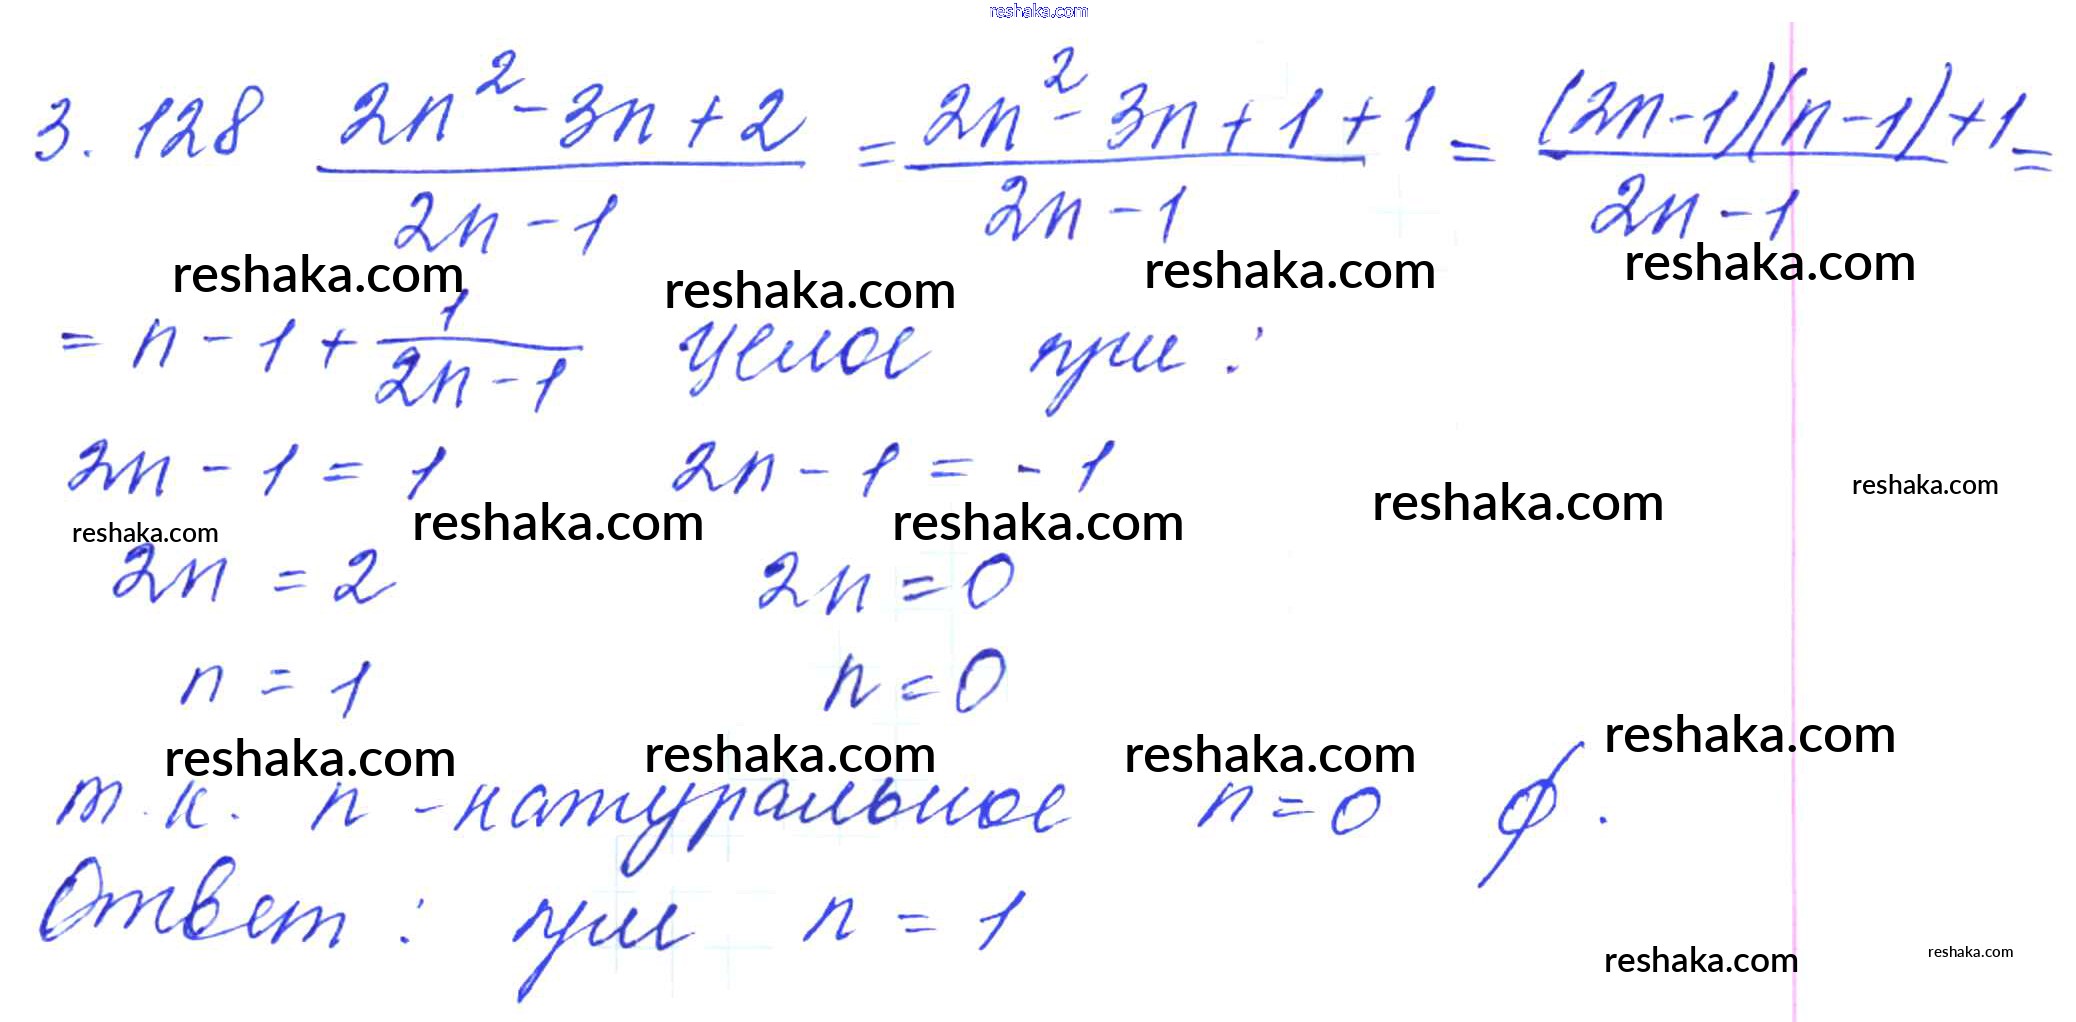 reshaka.com
3. 128 (2n² - 3n + 2)/(2n - 1) = (2n² - 3n + 1 + 1)/(2n - 1) = ((2n - 1)(n - 1) + 1)/(2n - 1) =
reshaka.com reshaka.com reshaka.com reshaka.com
= n - 1 + 1/(2n - 1) целое при :
2n - 1 = 1 2n - 1 = - 1
reshaka.com reshaka.com reshaka.com reshaka.com reshaka.com
2n = 2 2n = 0
n = 1 n = 0
reshaka.com reshaka.com reshaka.com reshaka.com
т.к. n - натуральное n = 0 ∅.
Ответ : при n = 1
reshaka.com reshaka.com